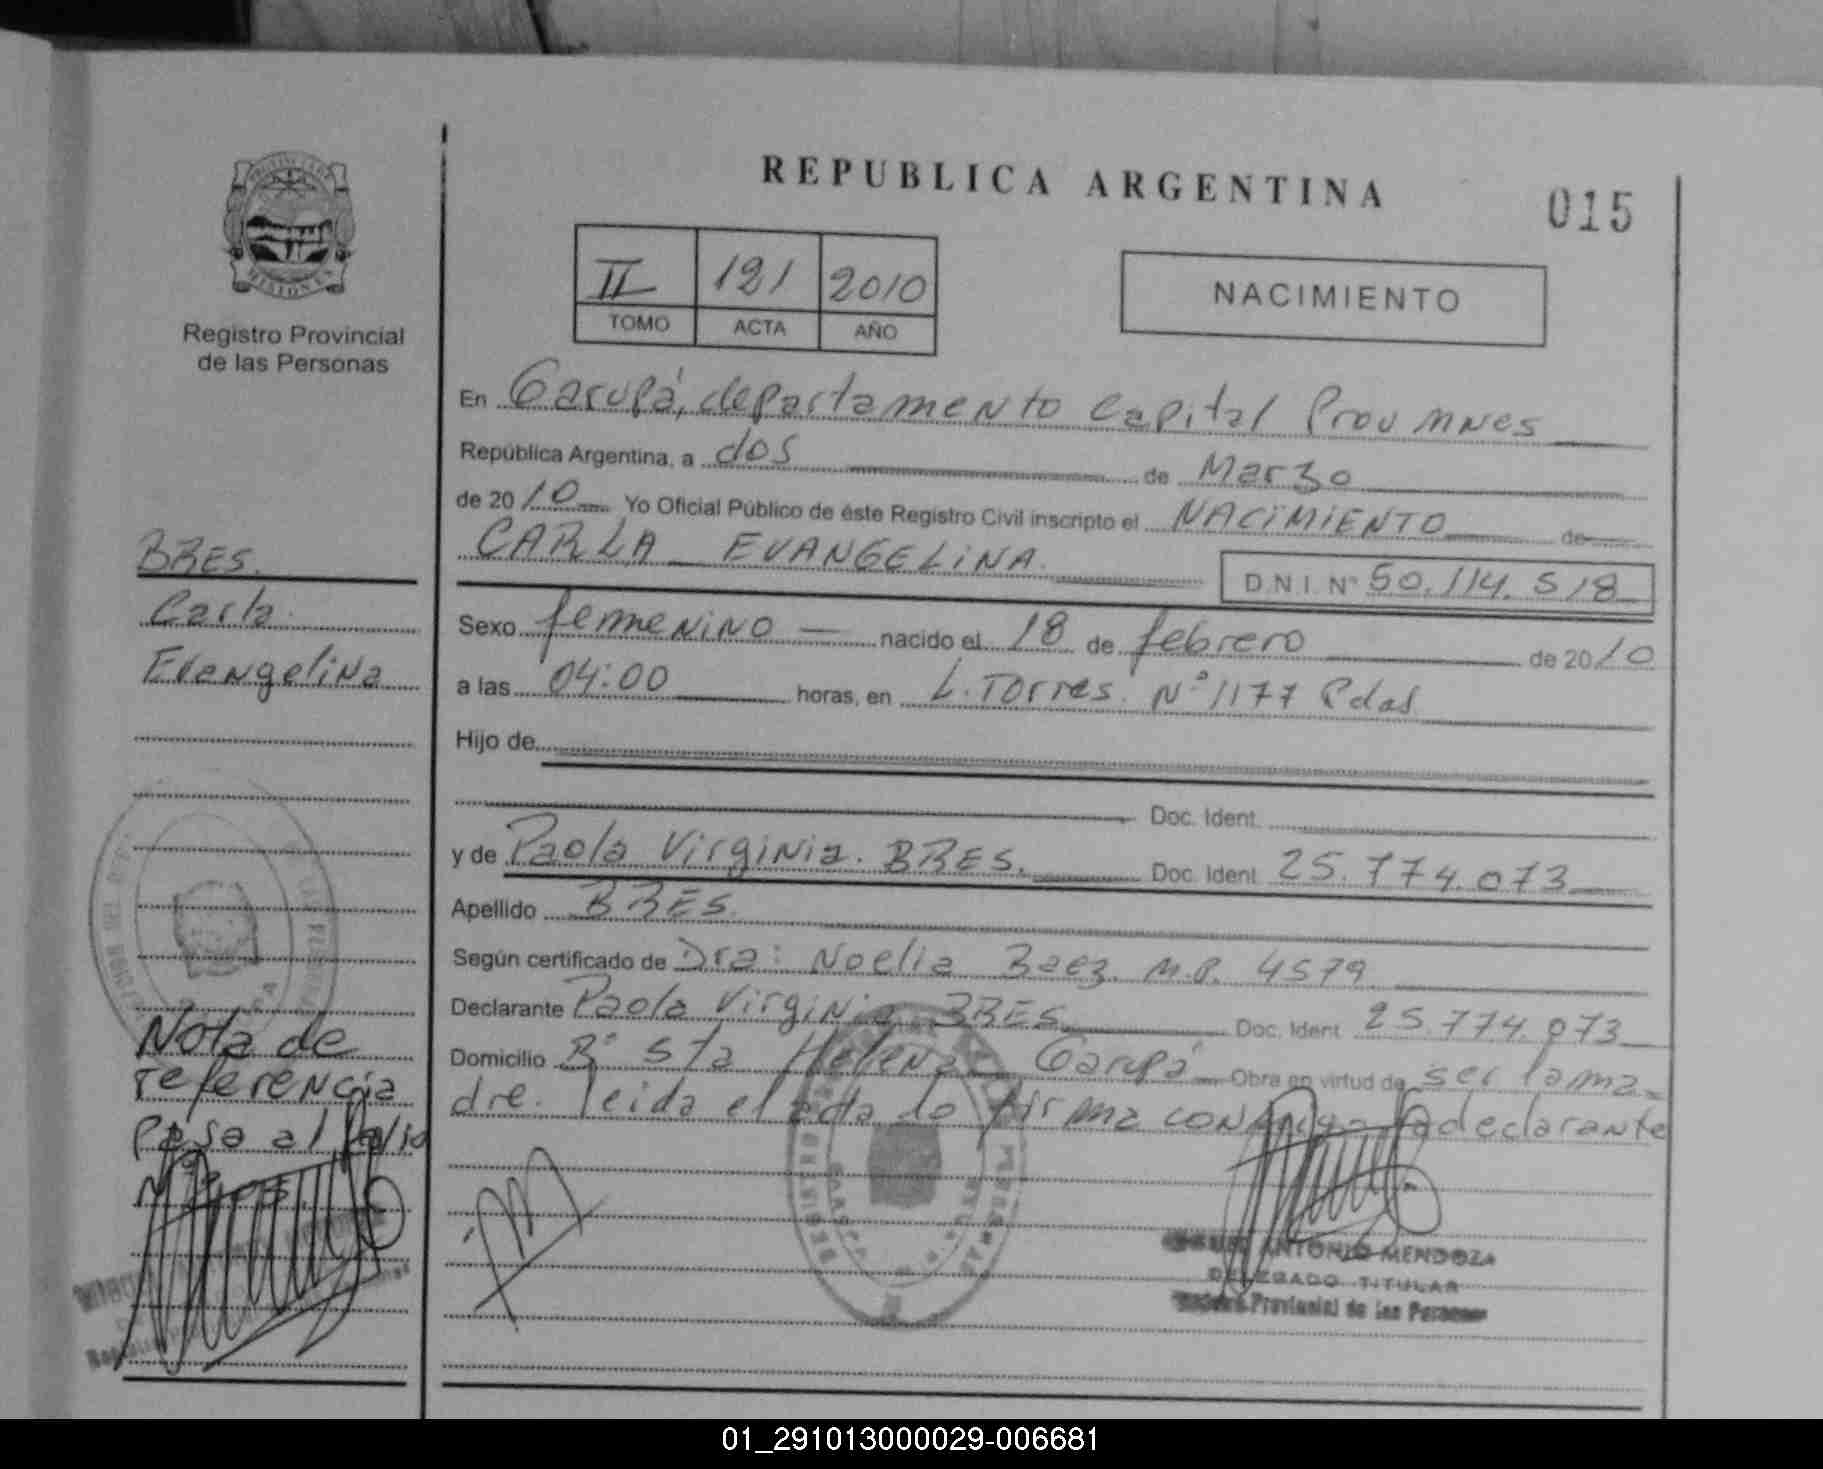 REPUBLICA ARGENTINA
015
PROVINCIA DE
MISIONES
Registro Provincial
de las Personas
II 121 2010
TOMO ACTA AÑO
NACIMIENTO
En Garupá, departamento Capital Prov Mnes
República Argentina, a dos de Marzo
de 2010 Yo Oficial Público de éste Registro Civil inscripto el NACIMIENTO de
CARLA EVANGELINA.
D.N.I. Nº 50.114.518
Sexo femenino nacido el 18 de febrero de 2010
a las 04:00 horas, en L. Torres. Nº 1177 Pdas
Hijo de
Doc. Ident.
y de Paola Virginia. BRES. Doc. Ident. 25.774.073
Apellido BRES.
Según certificado de Dra: Noelia Baez. M.P. 4579
Declarante Paola Virginia BRES Doc. Ident. 25.774.073
Domicilio Bº Sta Helena Garupá Obra en virtud de ser la ma-
dre. leida el acta lo firma conmigo la declarante
BRES.
Carla
Evangelina
Nota de
referencia
Pasa al folio
ANTONIO MENDOZA
DELEGADO TITULAR
Provincial de las Personas
01_291013000029-006681